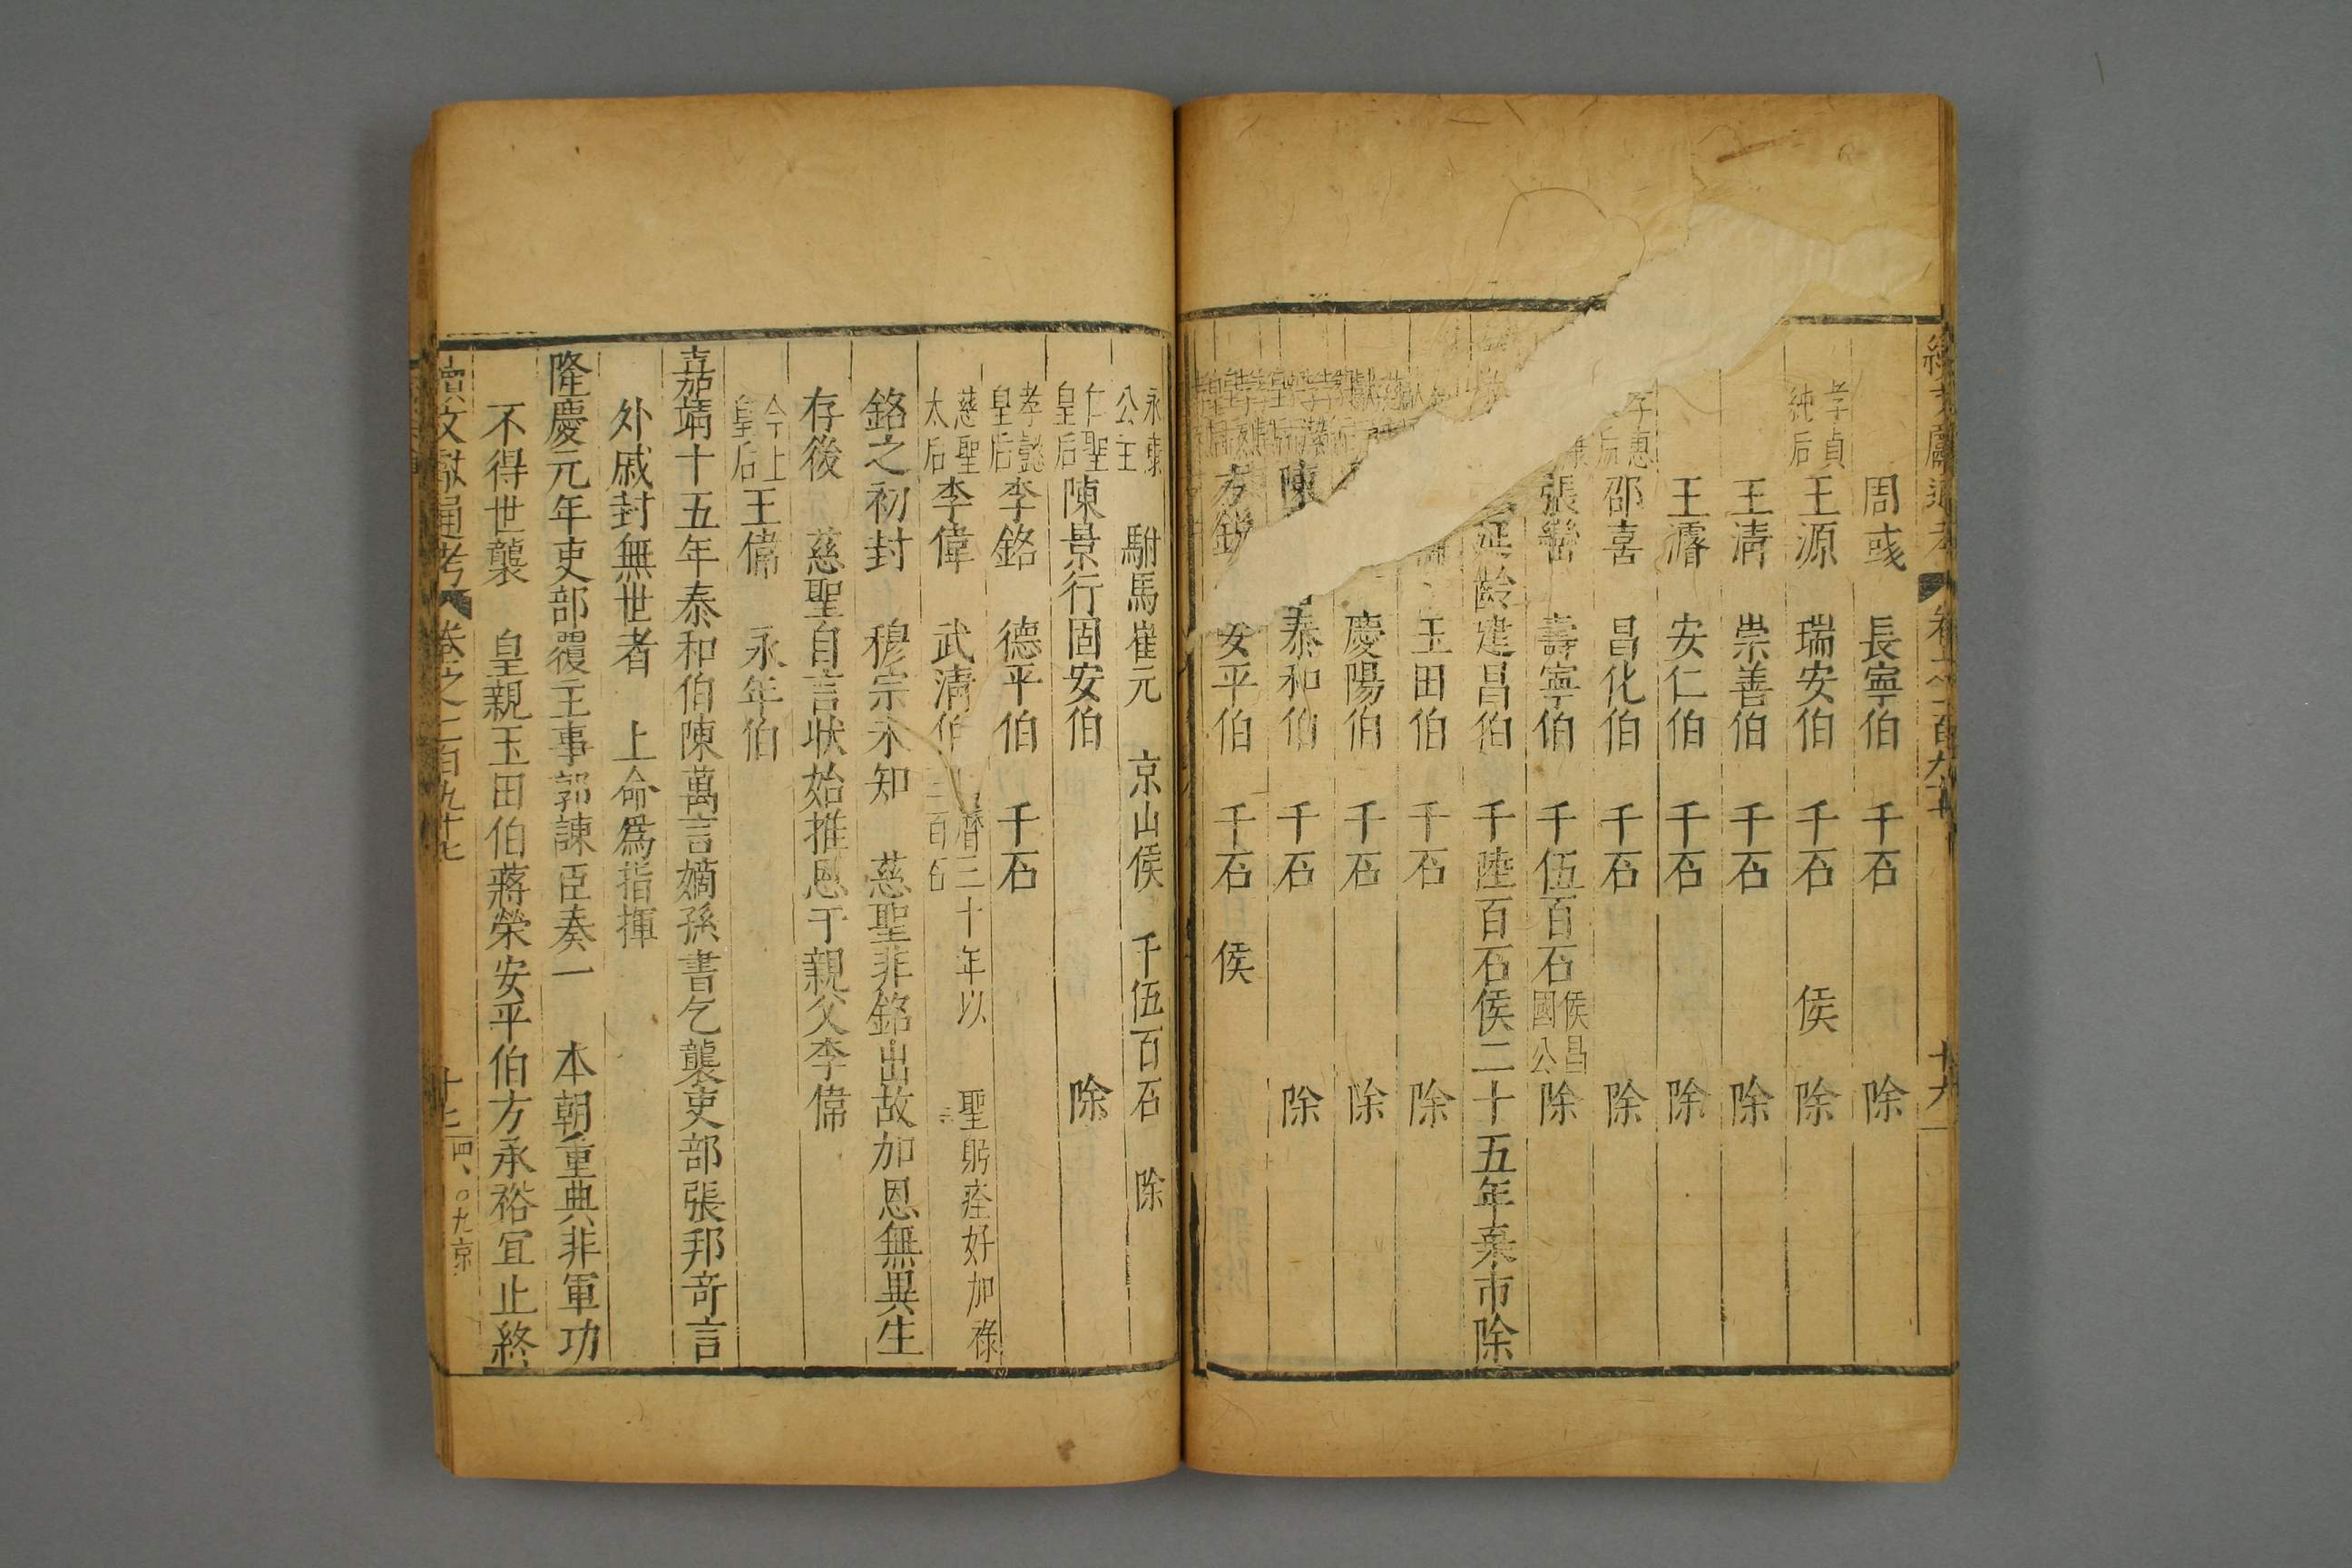 周彧 長寧伯 千石 除
孝貞純后 王源 瑞安伯 千石 侯 除
王清 崇善伯 千石 除
王濬 安仁伯 千石 除
孝惠 后 邵喜 昌化伯 千石 除
張巒 壽寧伯 千伍百石 侯昌國公 除
延齡 建昌伯 千陸百石 侯二十五年棄市除
玉田伯 千石 除
慶陽伯 千石 除
陳 泰和伯 千石 除
方銳 安平伯 千石 侯
永康公主 駙馬崔元 京山侯 千伍百石 除
仁聖皇后 陳景行 固安伯 除
孝懿皇后 李銘 德平伯 千石
慈聖太后 李偉 武清伯 曆三十年以 聖躬痊好加祿三百石
銘之初封 穆宗未知 慈聖非銘出故加恩無異生
存後 慈聖自言狀始推恩于親父李偉
今上皇后 王偉 永年伯
嘉靖十五年泰和伯陳萬言嫡孫書乞襲吏部張邦奇言
外戚封無世者 上命爲指揮
隆慶元年吏部覆主事郭諫臣奏一 本朝重典非軍功
不得世襲 皇親玉田伯蔣榮安平伯方承裕宜止終
續文獻通考 卷之二百九十七 十七 四〇九京